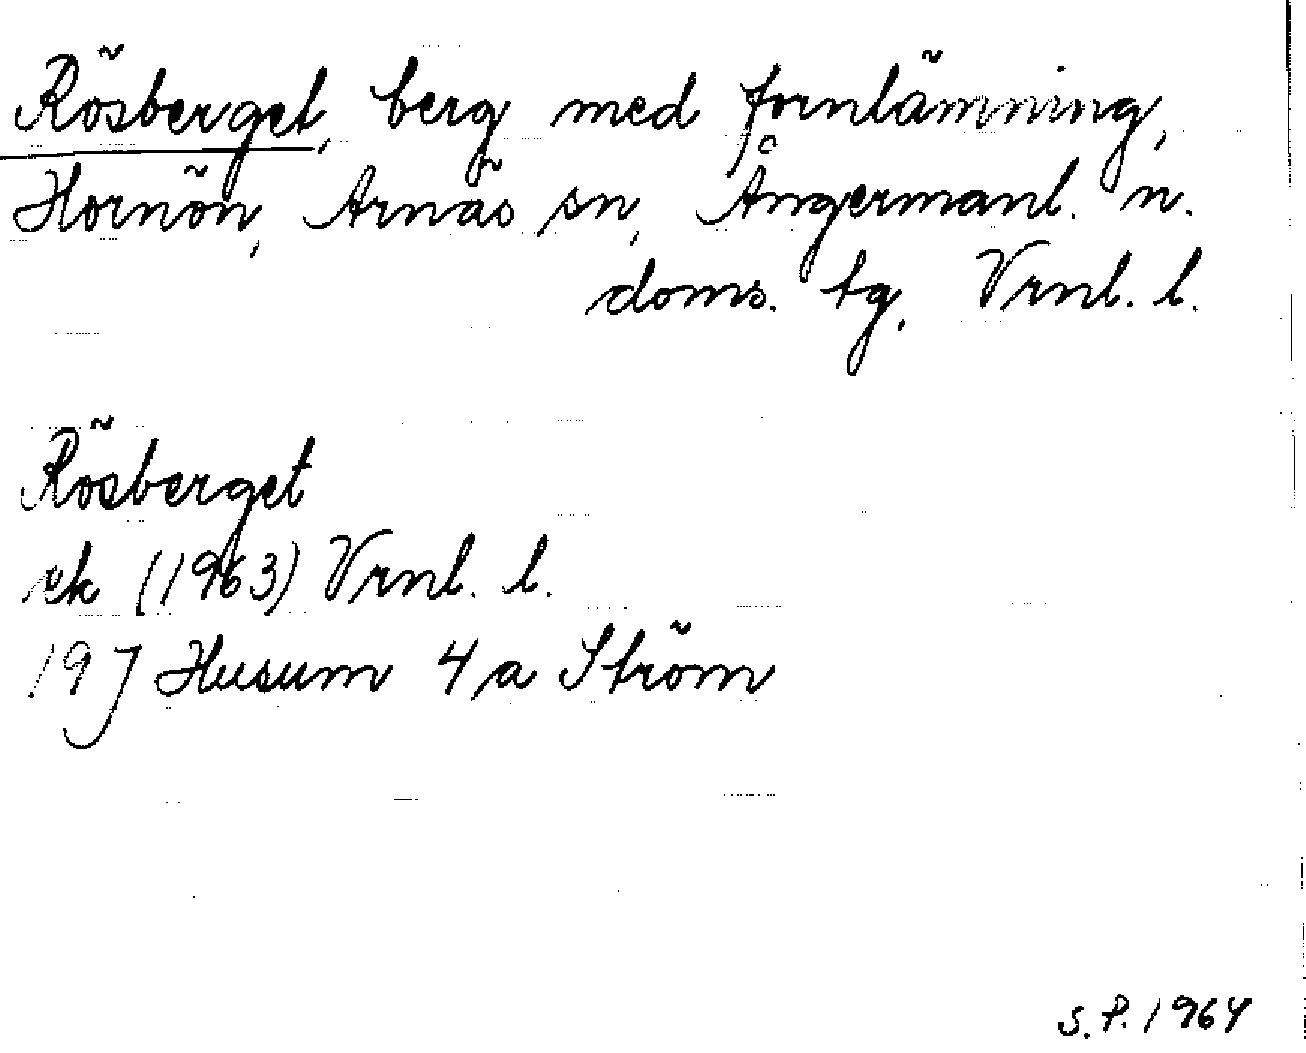 Rösberget, berg med fornlämning,
Hornön, Arnäs sn, Ångermanl. n.
doms. tg, Vrnl. l.
Rösberget
ek (1963) Vrnl. l.
19 J Husum 4 a Ström
S.P. 1964